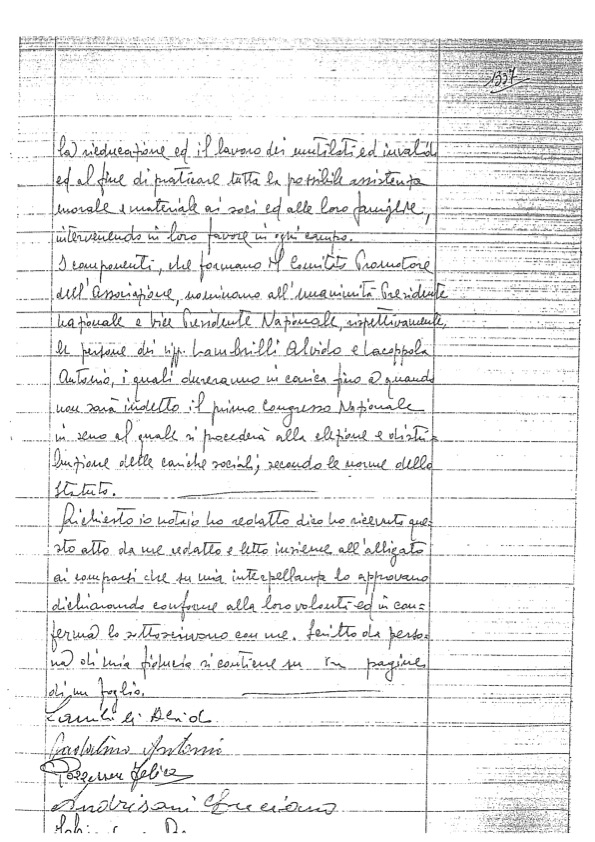 1337
la rieducazione ed il lavoro dei mutilati ed invalidi
ed al fine di praticare tutta la possibile assistenza
morale e materiale ai soci ed alle loro famiglie,
intervenendo in loro favore in ogni campo.
I componenti, che formano il Comitato Promotore
dell'Associazione, nominano all'unanimità Presidente
Nazionale e Vice Presidente Nazionale, rispettivamente,
le persone dei sigg. Lambrilli Alvido e Lacoppola
Antonio, i quali dureranno in carica fino a quando
non sarà indetto il primo Congresso Nazionale
in seno al quale si procederà alla elezione e distri=
buzione delle cariche sociali, secondo le norme dello
Statuto.
Richiesto io notaio ho redatto dico ho ricevuto que=
sto atto da me redatto e letto insieme all'alligato
ai comparsi che su mia interpellanza lo approvano
dichiarando conforme alla loro volontà ed in con=
ferma lo sottoscrivono con me. Scritto da perso=
na di mia fiducia si contiene su tre pagine
di un foglio.
Antonio
Felice
Andrisani Luciano